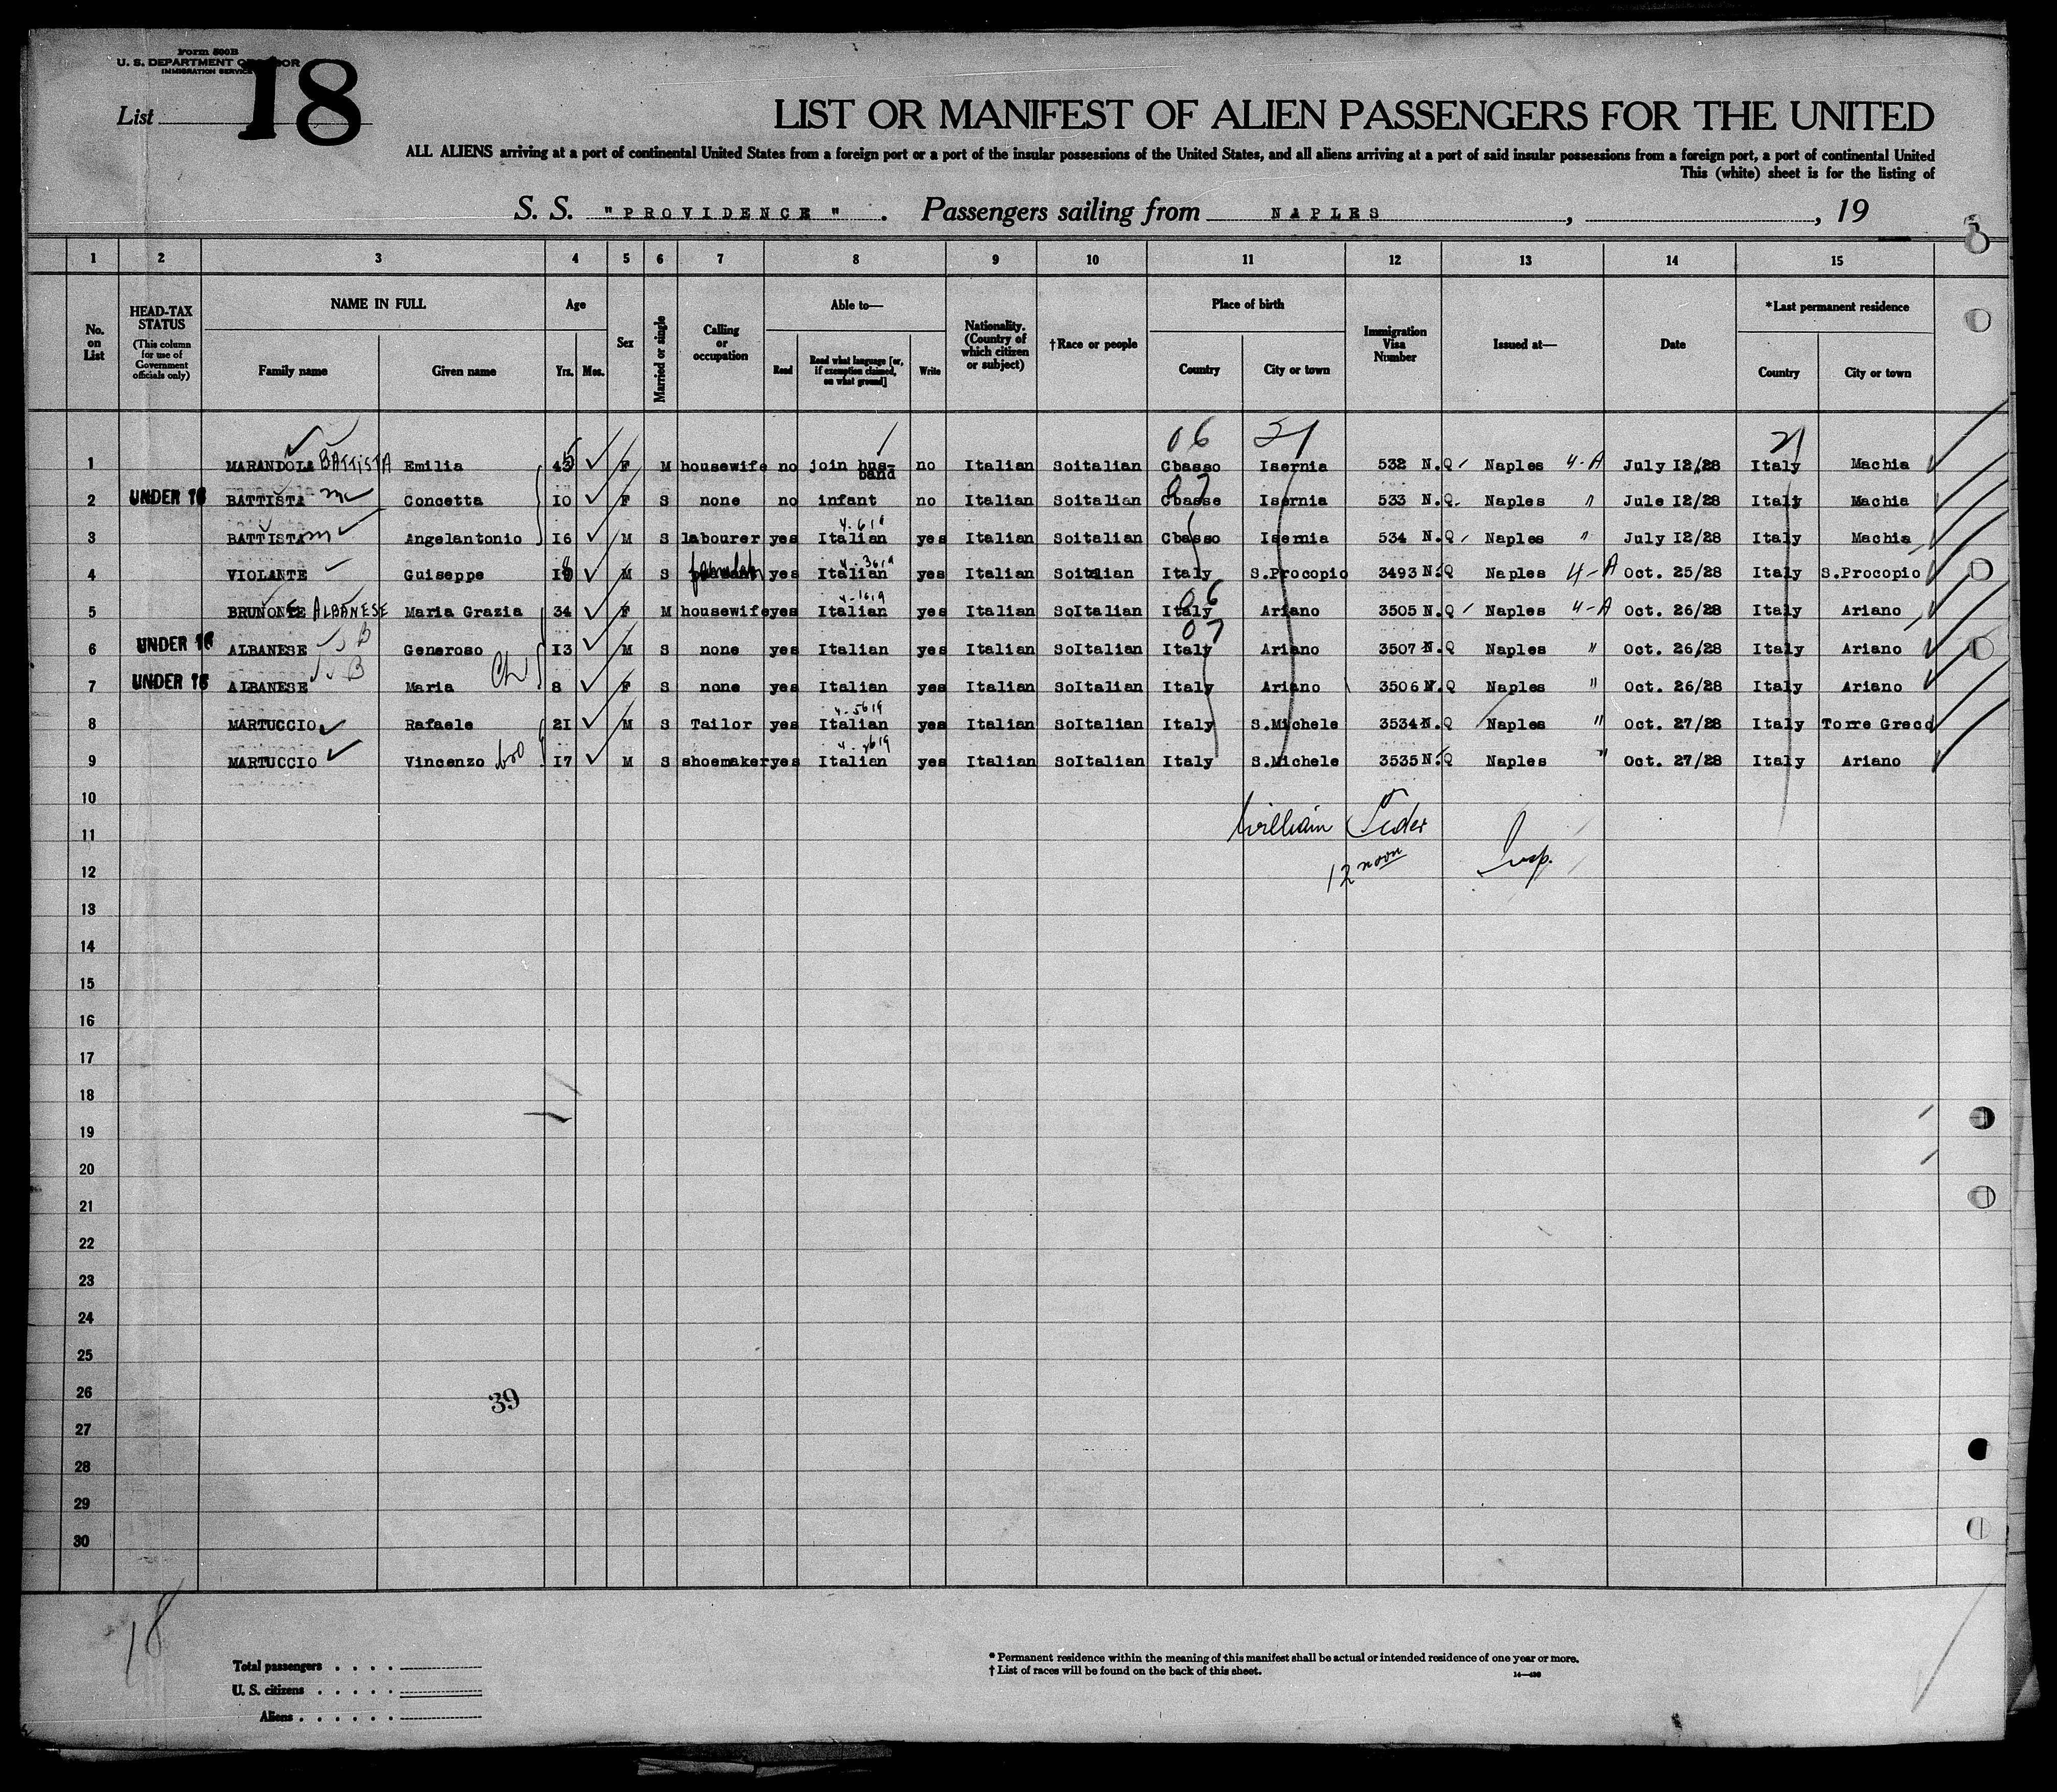 Form 500B
U. S. DEPARTMENT OF LABOR
IMMIGRATION SERVICE
List 18
LIST OR MANIFEST OF ALIEN PASSENGERS FOR THE UNITED
ALL ALIENS arriving at a port of continental United States from a foreign port or a port of the insular possessions of the United States, and all aliens arriving at a port of said insular possessions from a foreign port, a port of continental United
This (white) sheet is for the listing of
S. S. "PROVIDENCE". Passengers sailing from NAPLES, , 19
1 2 3 4 5 6 7 8 9 10 11 12 13 14 15
No. on List
HEAD-TAX STATUS (This column for use of Government officials only)
NAME IN FULL Family name Given name
Age Yrs. Mos.
Sex
Married or single
Calling or occupation
Able to— Read Read what language [or, if exemption claimed, on what ground] Write
Nationality. (Country of which citizen or subject)
†Race or people
Place of birth Country City or town
Immigration Visa Number
Issued at—
Date
*Last permanent residence Country City or town
06 21 21
1 MARANDOLA BATTISTA Emilia 45 F M housewife no join husband no Italian Soitalian Cbasso Isernia 532 N.Q Naples 4-A July 12/28 Italy Machia
07
2 UNDER 16 BATTISTA m Concetta 10 F S none no infant no Italian Soitalian Cbasse Isernia 533 N.Q. Naples " Jule 12/28 Italy Machia
3 BATTISTA m Angelantonio 16 M S labourer yes Italian yes Italian Soitalian Cbasso Isernia 534 N.Q Naples " July 12/28 Italy Machia
4 VIOLANTE Guiseppe 18 M S yes Italian yes Italian Soitalian Italy S.Procopio 3493 N.Q Naples 4-A Oct. 25/28 Italy S.Procopio
06
5 BRUNONE ALBANESE Maria Grazia 34 F M housewife yes Italian yes Italian SoItalian Italy Ariano 3505 N.Q Naples 4-A Oct. 26/28 Italy Ariano
07
6 UNDER 16 ALBANESE B Generoso 13 M S none yes Italian yes Italian SoItalian Italy Ariano 3507 N.Q Naples " Oct. 26/28 Italy Ariano
7 UNDER 16 ALBANESE B Maria Ch 8 F S none yes Italian yes Italian SoItalian Italy Ariano 3506 N.Q Naples " Oct. 26/28 Italy Ariano
8 MARTUCCIO Rafaele 21 M S Tailor yes Italian yes Italian SoItalian Italy S.Michele 3534 N.Q Naples " Oct. 27/28 Italy Torre Greco
9 MARTUCCIO Vincenzo bro 17 M S shoemaker yes Italian yes Italian SoItalian Italy S.Michele 3535 N.Q Naples " Oct. 27/28 Italy Ariano
10
11 William
12 12 noon Insp.
13
14
15
16
17
18
19
20
21
22
23
24
25
26 39
27
28
29
30
18
Total passengers . . . .
U. S. citizens . . . . .
Aliens . . . . . .
* Permanent residence within the meaning of this manifest shall be actual or intended residence of one year or more.
† List of races will be found on the back of this sheet.